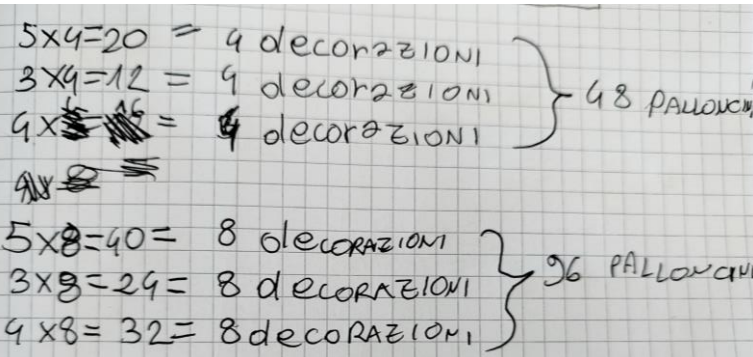 5x4=20 = 4 decorazIONI
3x4=12 = 4 decorazIONI
4x4=16 = 4 decorazIONI
48 PALLONCINI
5x8=40= 8 deCORAZIONI
3x8=24= 8 deCORAZIONI
4x8=32= 8 decoRAZIONI
96 PALLONCINI